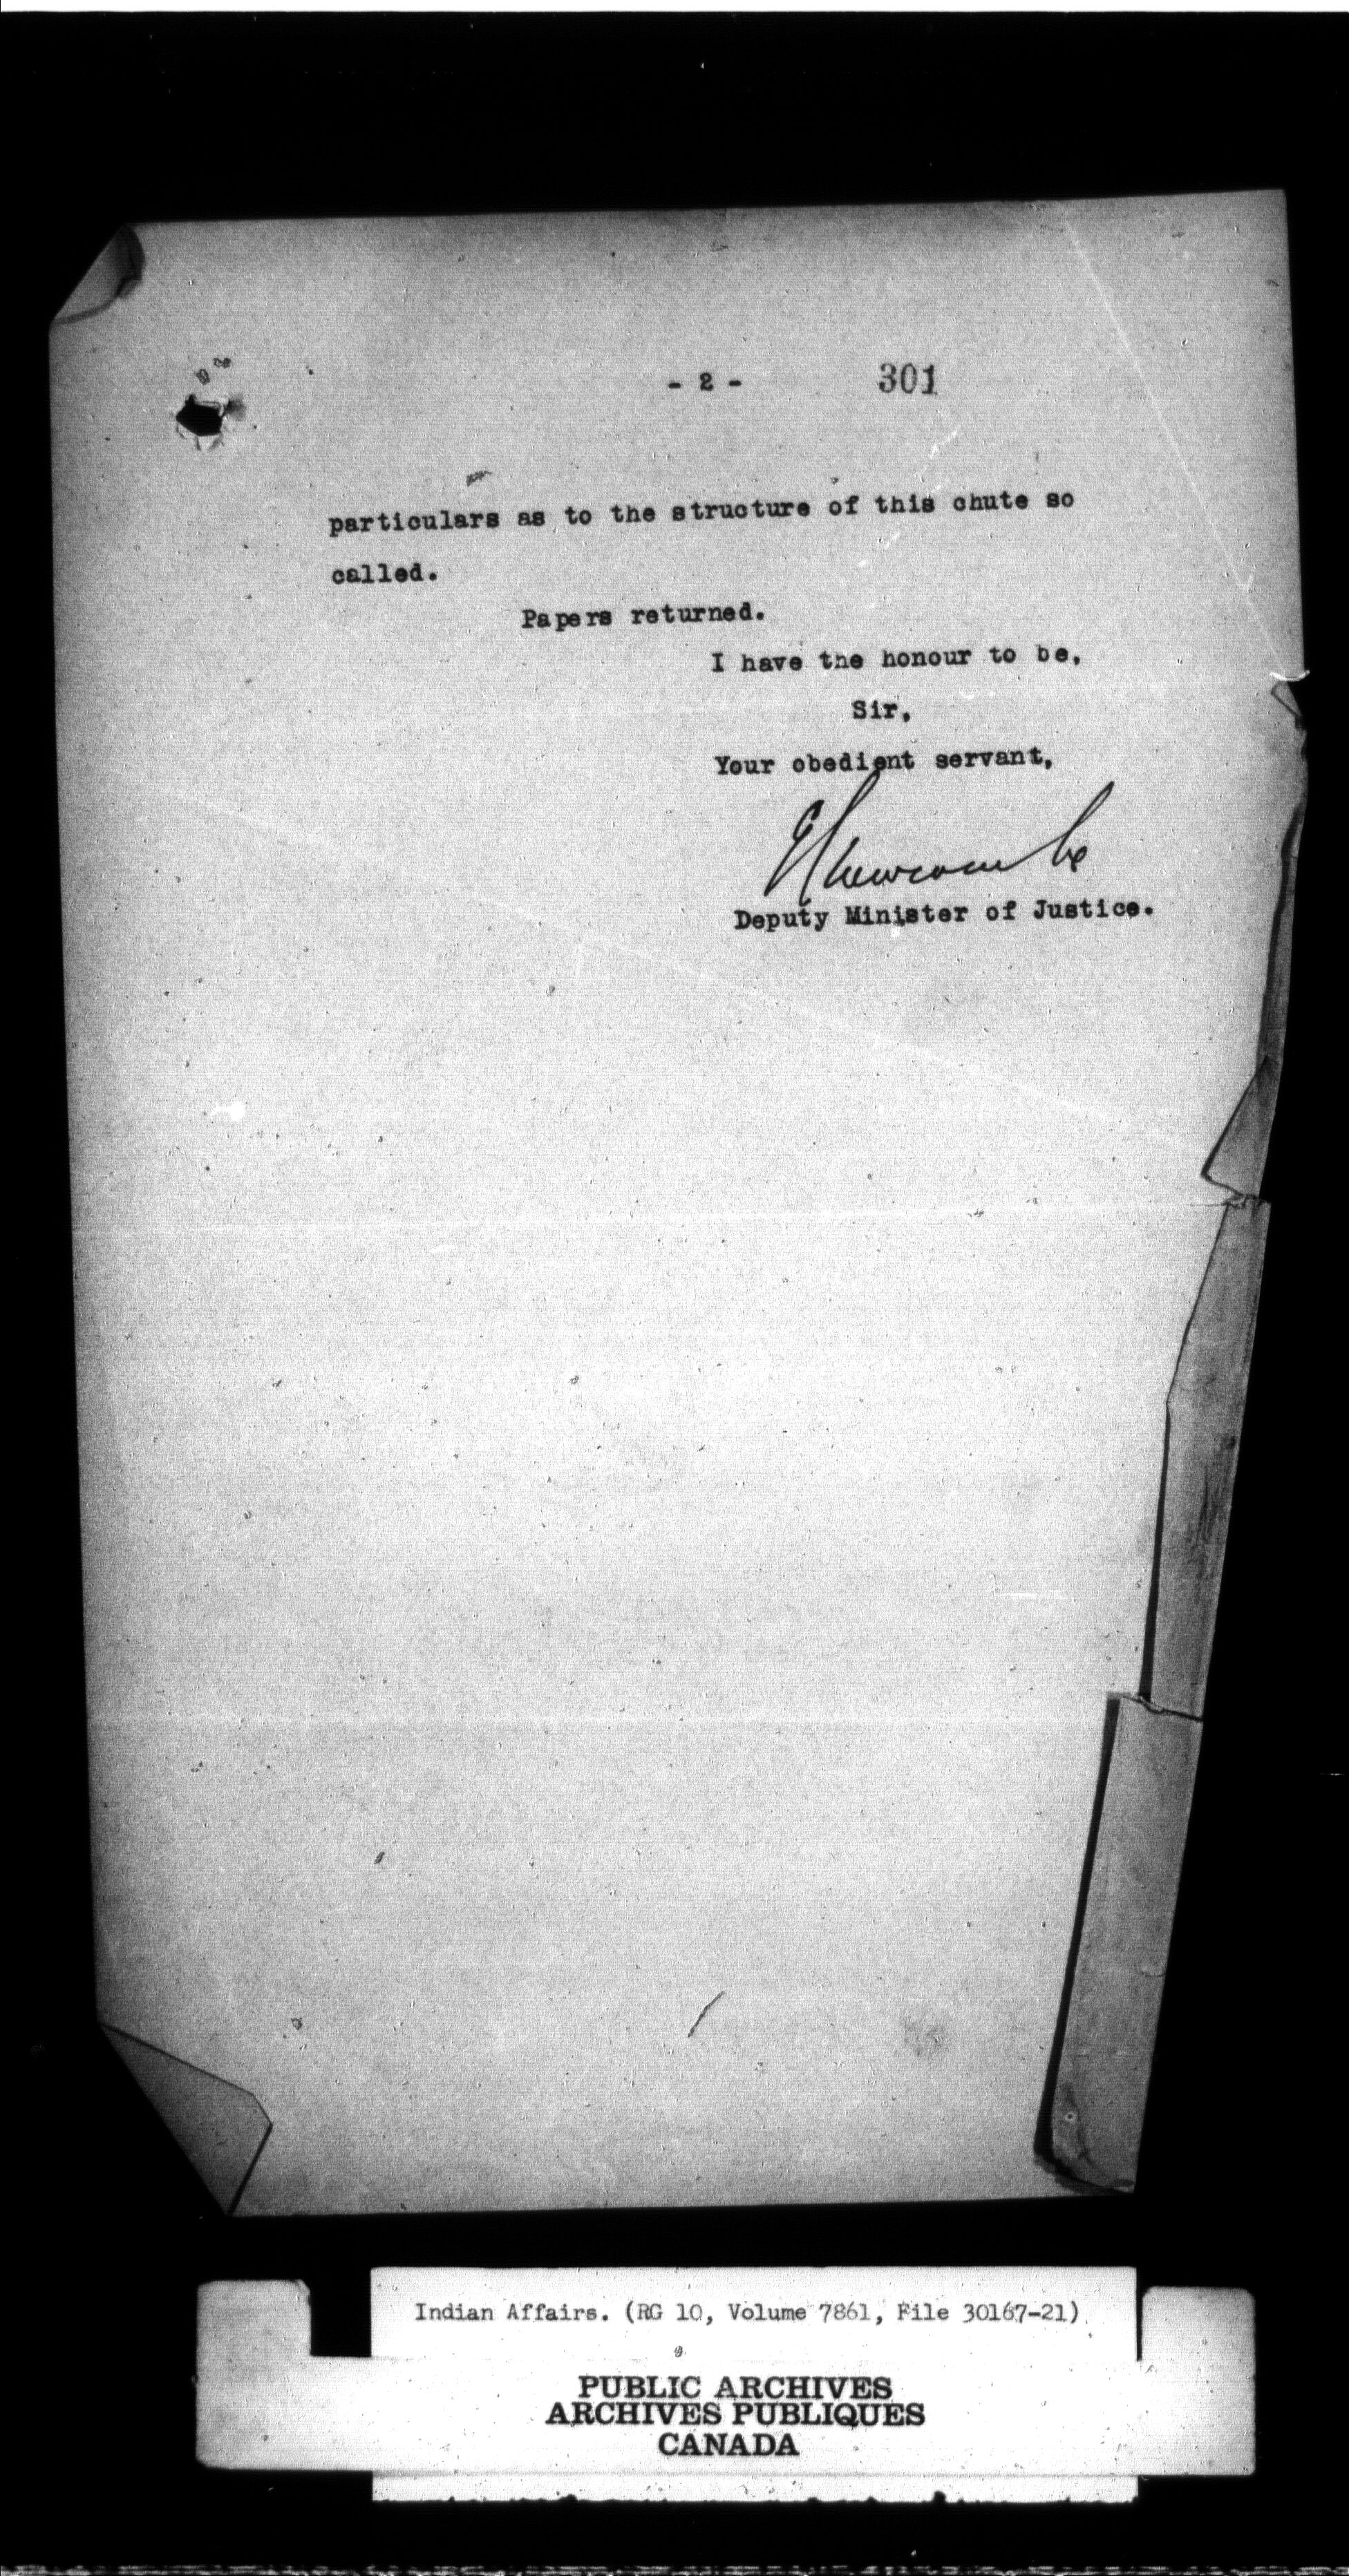 - 2 - 301
particulars as to the structure of this chute so
called.
Papers returned.
I have the honour to be,
Sir,
Your obedient servant,
E L Newcombe
Deputy Minister of Justice.
Indian Affairs. (RG 10, Volume 7861, File 30167-21)
PUBLIC ARCHIVES
ARCHIVES PUBLIQUES
CANADA